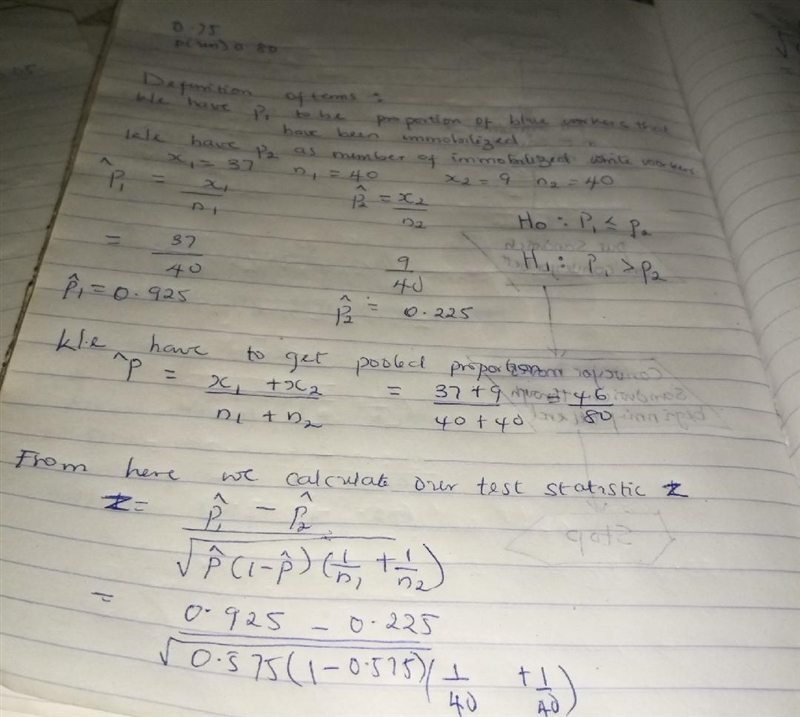 0.75
0.80
Definition of terms:
We have P₁ to be proportion of blue workers that
have been immobilized
We have P₂ as number of immobilized white workers
x₁ = 37 n₁ = 40 x₂ = 9 n₂ = 40
p̂₁ = x₁/n₁ p̂₂ = x₂/n₂ H₀ : P₁ ≤ P₂
= 37/40 9/40 H₁ : P₁ > P₂
p̂₁ = 0.925 p̂₂ = 0.225
We have to get pooled proportion
p̂ = (x₁ + x₂)/(n₁ + n₂) = (37 + 9)/(40 + 40) = 46/80
From here we calculate our test statistic Z
Z = (p̂₁ − p̂₂)/√(p̂(1−p̂)(1/n₁ + 1/n₂))
= (0.925 − 0.225)/√(0.575(1−0.575)(1/40 + 1/40))
Stop